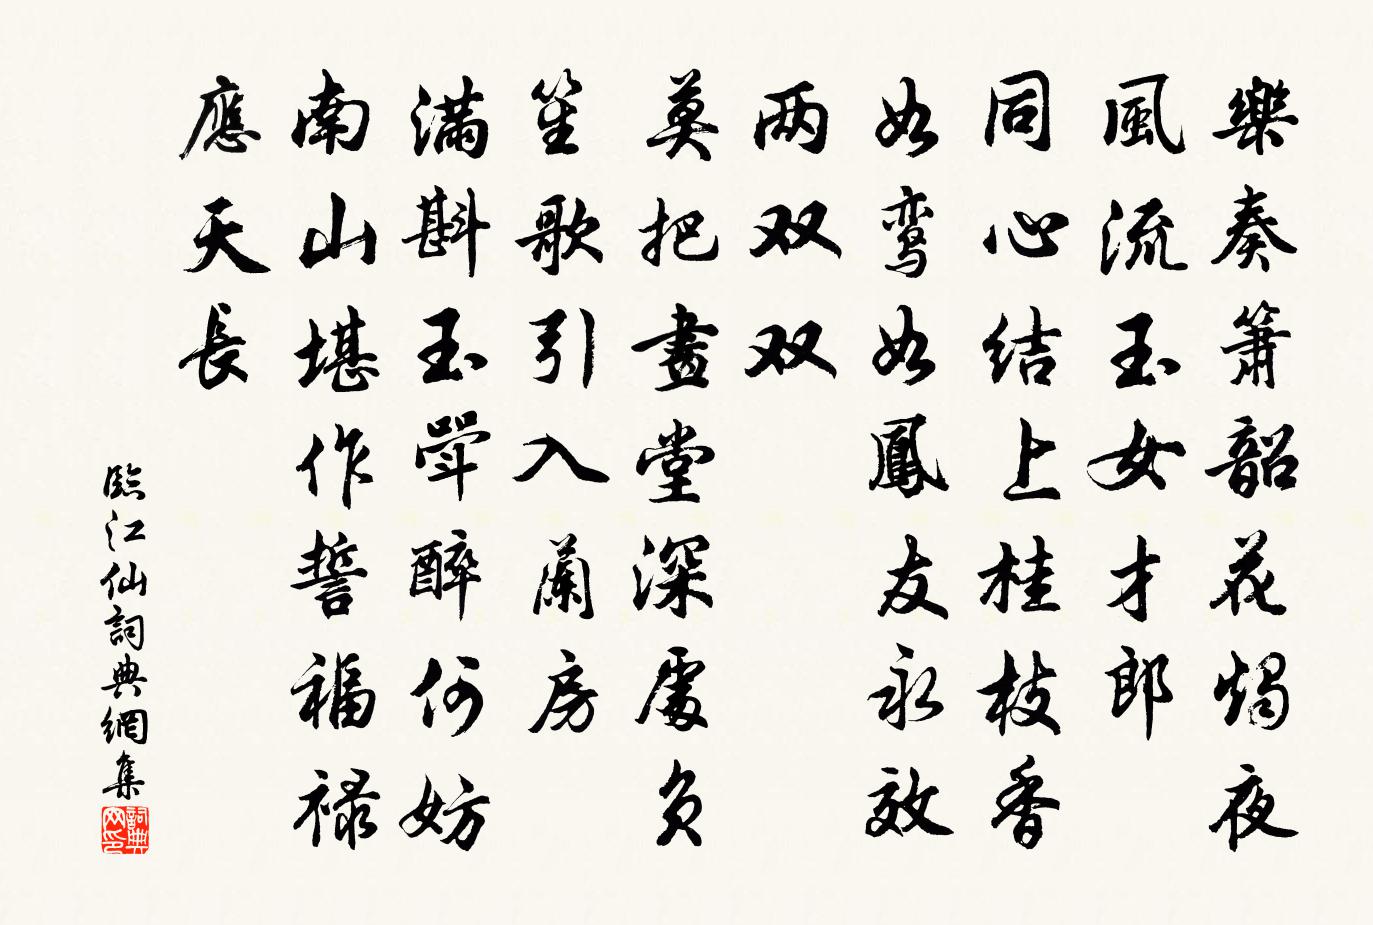 樂奏簫韶花燭夜
風流玉女才郎
同心结上桂枝香
如鸞如鳳友永效
两双双
莫把畫堂深處負
笙歌引入蘭房
滿斟玉斝醉何妨
南山堪作誓福禄
應天長
臨江仙詞典網集
詞典网